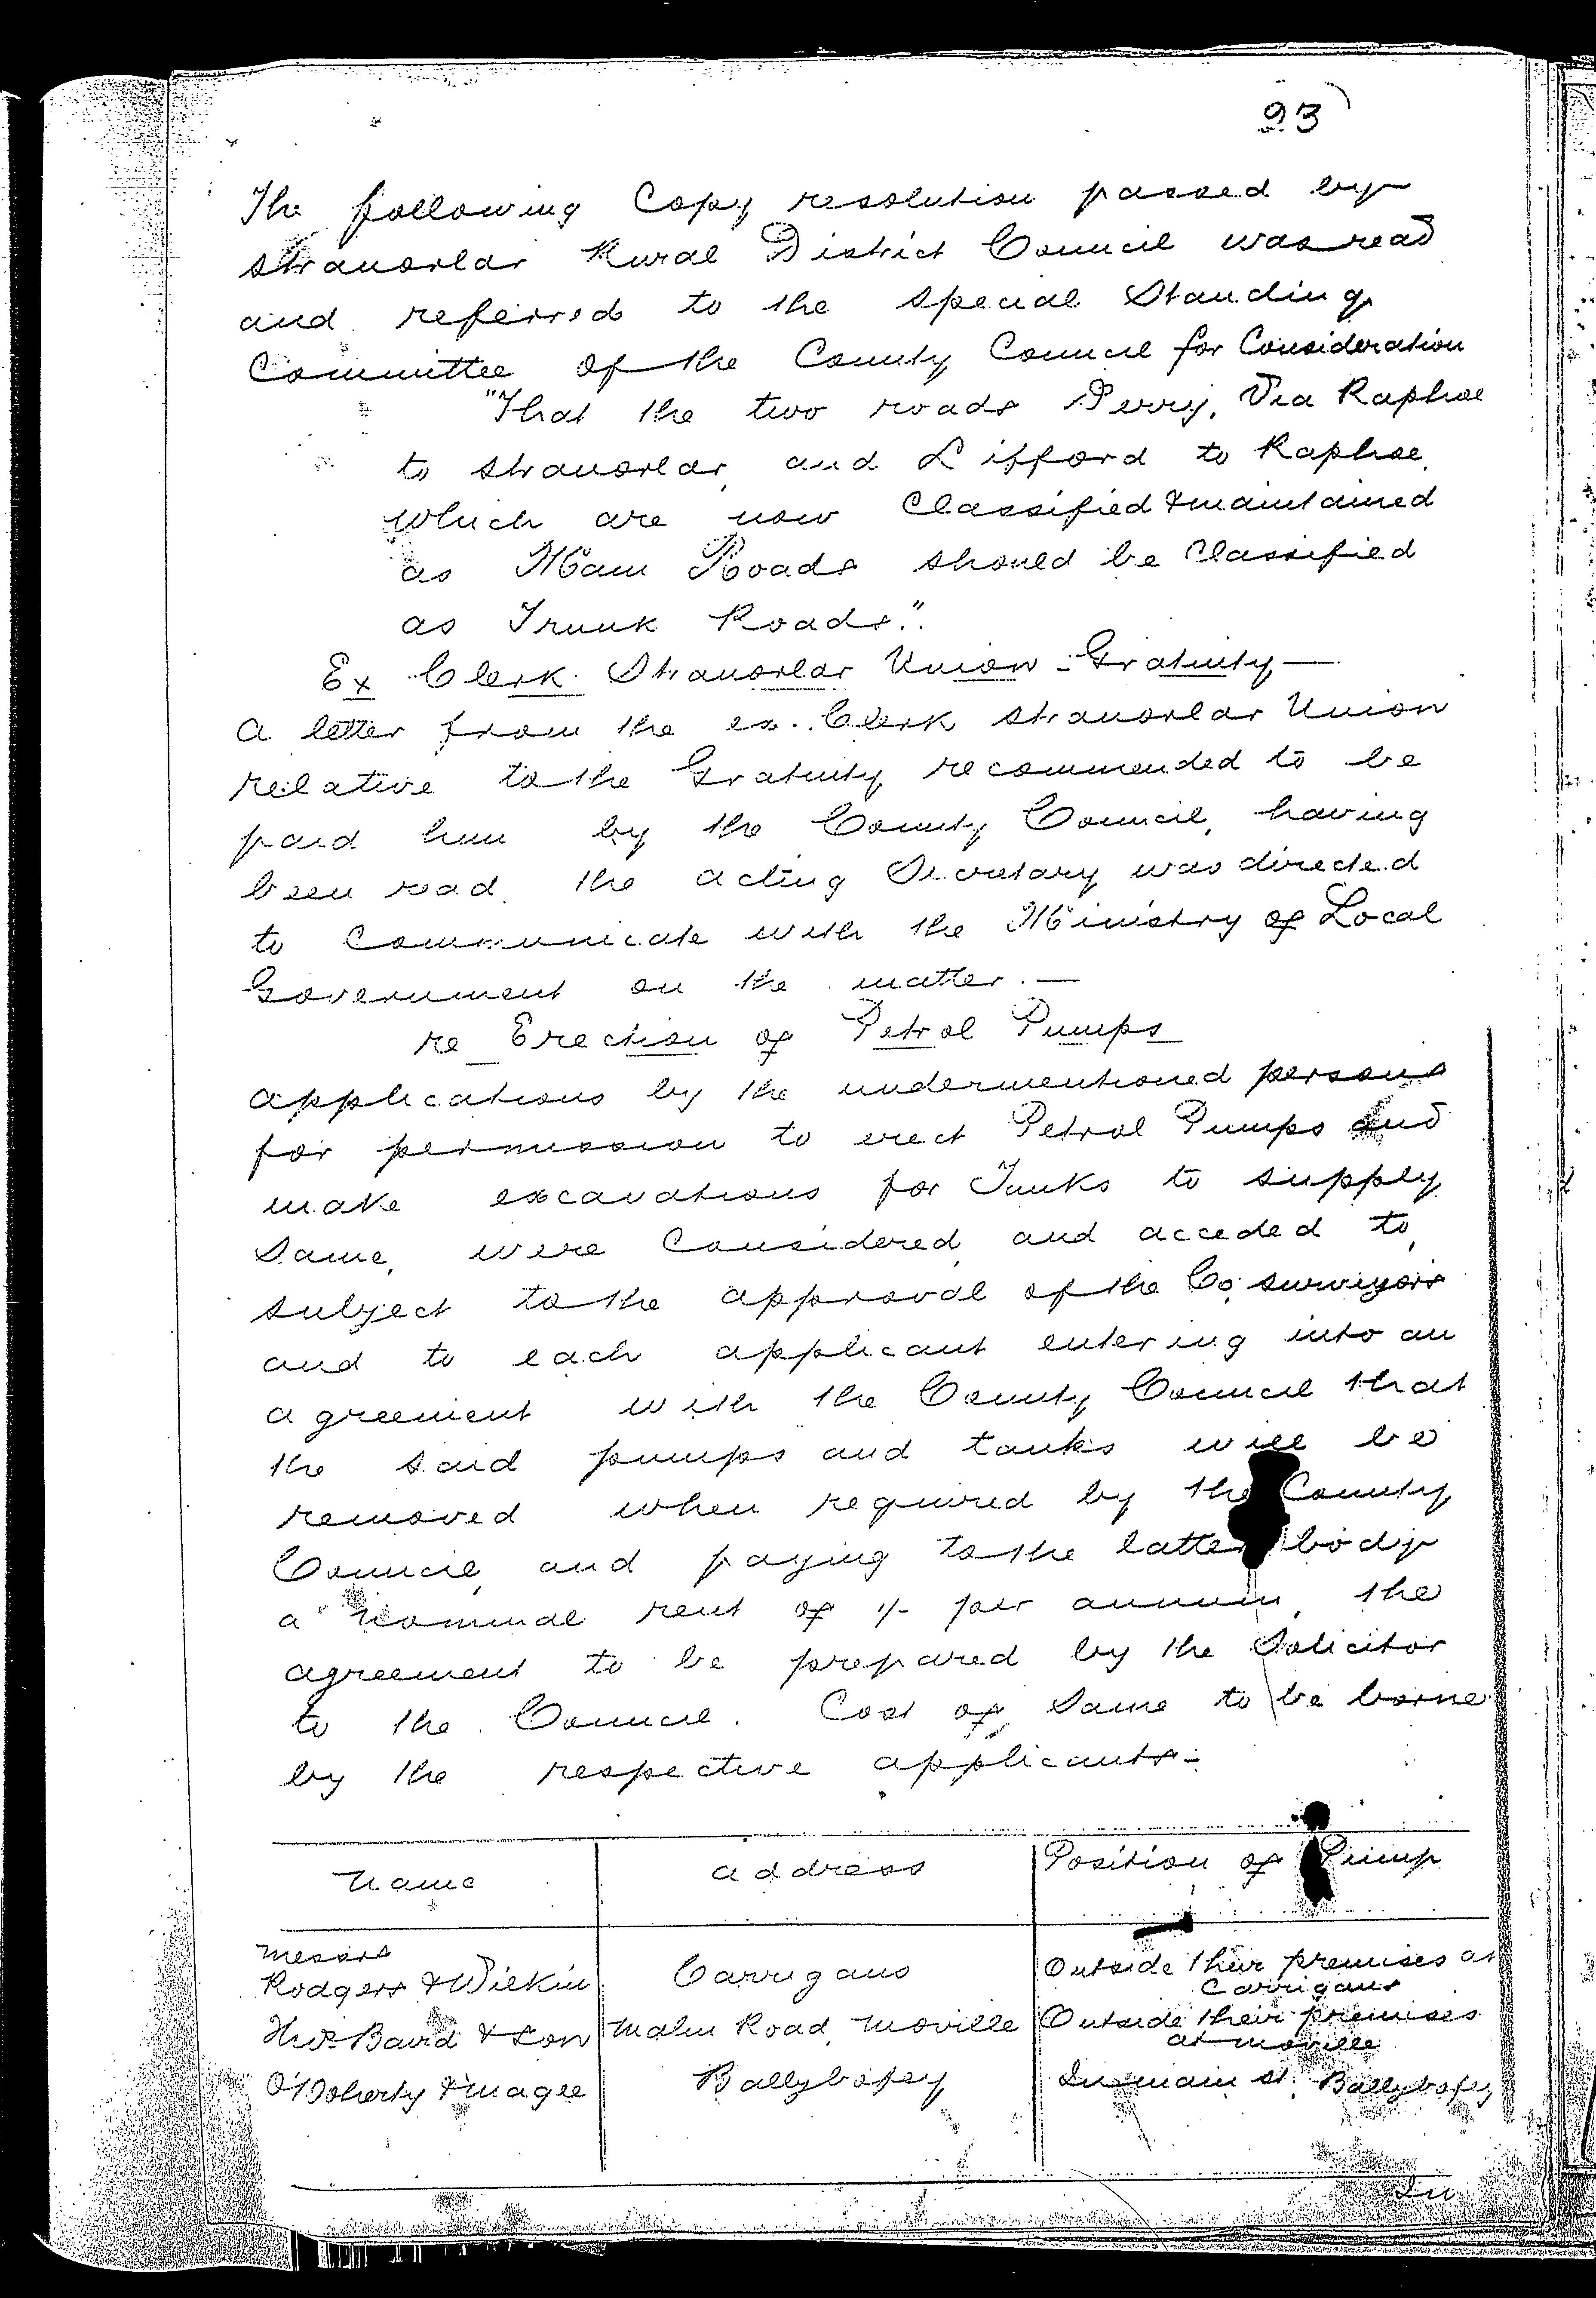 93
The following Copy resolution passed by
Stranorlar Rural District Council was read
and referred to the Special Standing
Committee of the County Council for Consideration
"That the two roads Derry, Via Raphoe
to Stranorlar, and Lifford to Raphoe,
which are now Classified & maintained
as Main Roads should be Classified
as Trunk Roads."
Ex Clerk Stranorlar Union - Gratuity —
A letter from the ex. Clerk Stranorlar Union
relative to the Gratuity recommended to be
paid him by the County Council, having
been read, the acting Secretary was directed
to Communicate with the Ministry of Local
Government on the matter. —
re Erection of Petrol Pumps
Applications by the undermentioned persons
for permission to erect Petrol Pumps and
make excavations for Tanks to supply
Same, were Considered, and acceded to,
subject to the approval of the Co, surveyors
and to each applicant entering into an
agreement with the County Council that
the said pumps and tanks will be
removed when required by the County
Council, and paying to the latter body
a nominal rent of 1/- per annum, the
agreement to be prepared by the Solicitor
to the Council. Cost of Same to be borne
by the respective applicants -
Name Address Position of Pump
Messrs
Rodgers & Wilkin Carrigans Outside their premises at
Carrigans
Baird & Son Malin Road, Moville Outside their premises
at Moville
O'Doherty & Magee Ballybofey In main st. Ballybofey
In